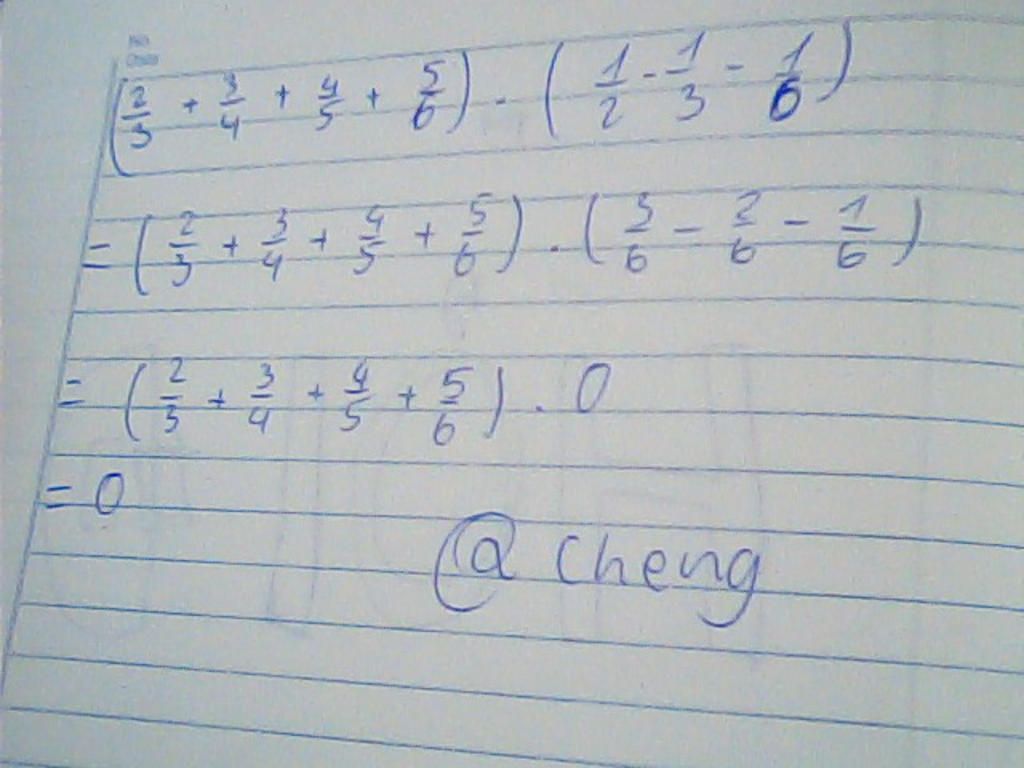 (2/3 + 3/4 + 4/5 + 5/6) . (1/2 - 1/3 - 1/6)
= (2/3 + 3/4 + 4/5 + 5/6) . (3/6 - 2/6 - 1/6)
= (2/3 + 3/4 + 4/5 + 5/6) . 0
= 0
@ Cheng